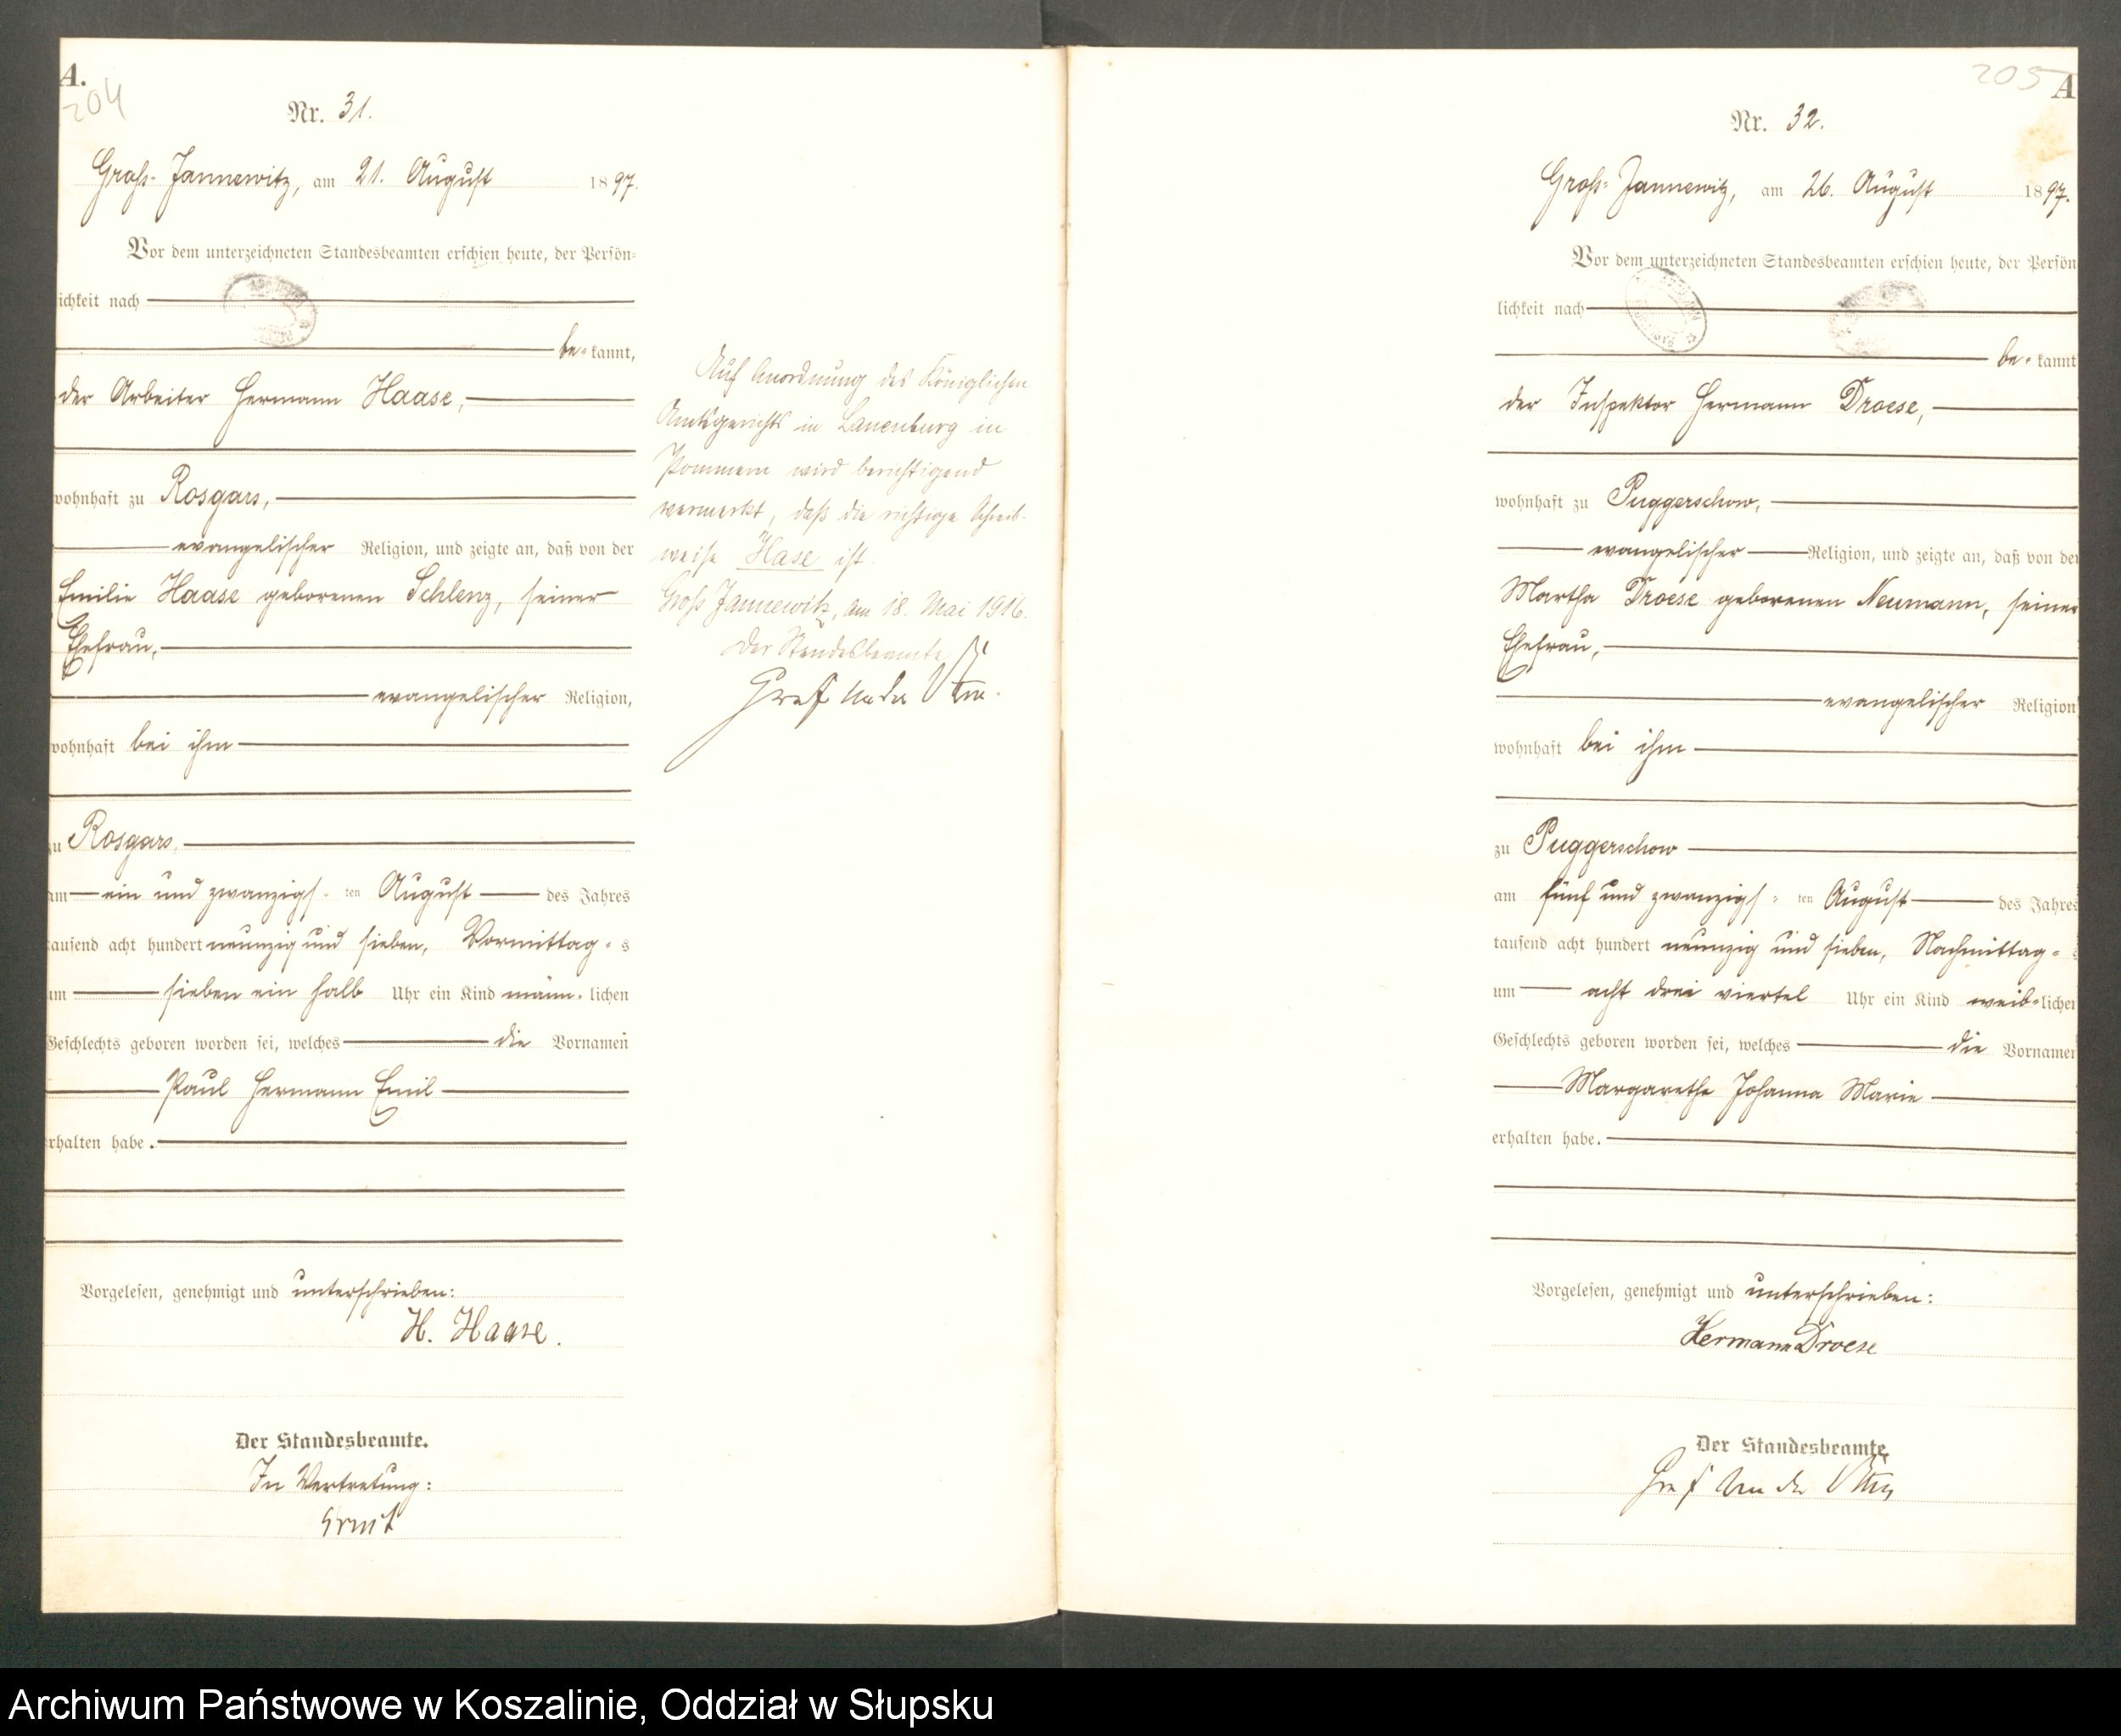 A.
204
Nr. 31.
Groß-Jannewitz, am 21. August 1897.
Vor dem unterzeichneten Standesbeamten erschien heute, der Persön-
lichkeit nach
be-kannt,
der Arbeiter Hermann Haase,
wohnhaft zu Rosgars,
evangelischer Religion, und zeigte an, daß von der
Emilie Haase geborenen Schlenz, seiner
Ehefrau,
evangelischer Religion,
wohnhaft bei ihm
zu Rosgars,
am ein und zwanzigs-ten August des Jahres
tausend acht hundert neunzig und sieben, Vormittag-s
um sieben ein halb Uhr ein Kind männ-lichen
Geschlechts geboren worden sei, welches die Vornamen
Paul Hermann Emil
erhalten habe.
Vorgelesen, genehmigt und unterschrieben:
H. Haase.
Der Standesbeamte.
In Vertretung:
Auf Anordnung des Königlichen
Amtsgerichts in Lauenburg in
Pommern wird berichtigend
vermerkt, daß die richtige Schreib-
weise Hase ist.
Groß Jannewitz, am 18. Mai 1916.
Der Standesbeamte
Graf von der
205
A
Nr. 32.
Groß-Jannewitz, am 26. August 1897.
Vor dem unterzeichneten Standesbeamten erschien heute, der Persön
lichkeit nach
be-kannt
der Inspektor Hermann Droese,
wohnhaft zu Puggerschow,
evangelischer Religion, und zeigte an, daß von der
Martha Droese geborenen Neumann, seiner
Ehefrau,
evangelischer Religion
wohnhaft bei ihm
zu Puggerschow
am fünf und zwanzigs-ten August des Jahres
tausend acht hundert neunzig und sieben, Nachmittag-
um acht drei viertel Uhr ein Kind weib-lichen
Geschlechts geboren worden sei, welches die Vornamen
Margarethe Johanna Marie
erhalten habe.
Vorgelesen, genehmigt und unterschrieben:
Hermann Droese
Der Standesbeamte
Graf von der
Archiwum Państwowe w Koszalinie, Oddział w Słupsku